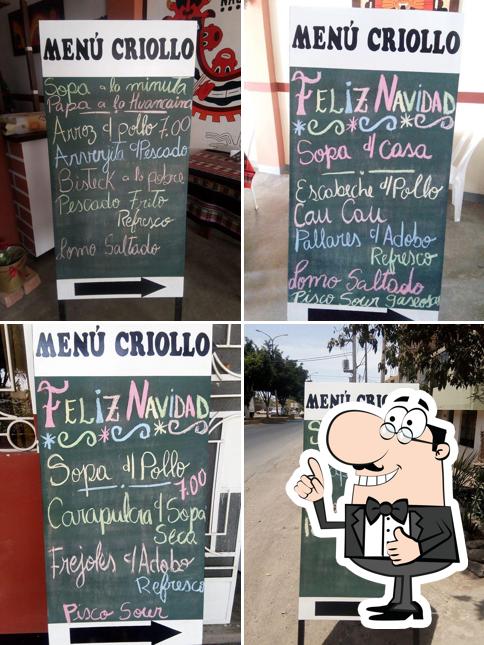 MENÚ CRIOLLO
Sopa a la minuta
Papa a la Huancaina
Arroz d/ pollo 7.00
Arverjita d/ Pescado
Bisteck a lo pobre
Pescado Frito
Refresco
Lomo Saltado
MENÚ CRIOLLO
FELIZ NAVIDAD
Sopa d/ casa
Escabeche d/ Pollo
Cau Cau
Pallares c/ Adobo
Refresco
Lomo Saltado
Pisco Sour gaseosa
MENÚ CRIOLLO
FELIZ NAVIDAD
Sopa d/ Pollo
7.00
Carapulcra d/ Sopa
Seca
Frejoles c/ Adobo
Refresco
Pisco Sour
MENÚ